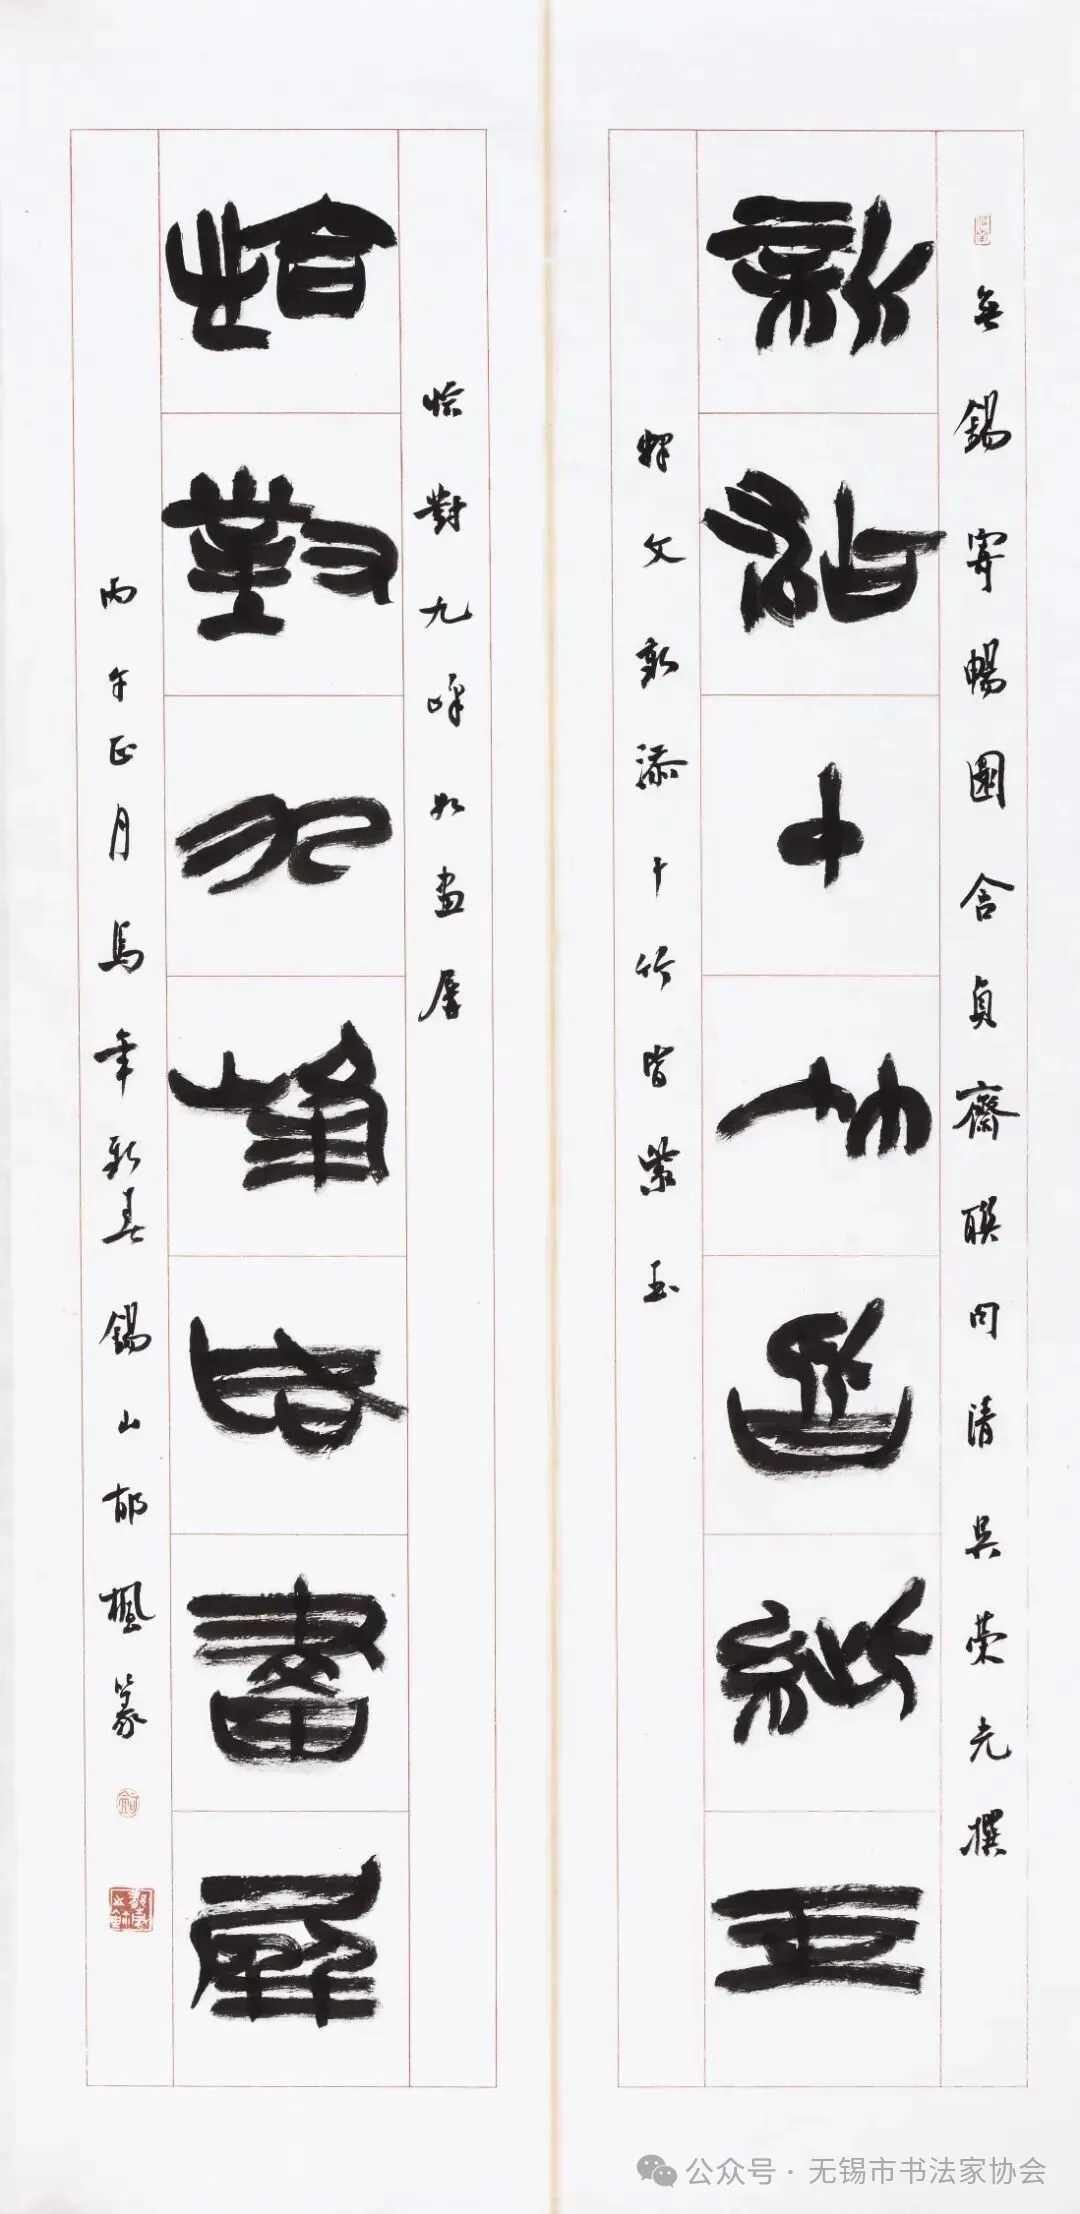 無錫寄暢園含貞齋聯句清吳荣光撰
新添十竹皆紫玉
釋文新添十竹皆紫玉
恰對九峰如畫屏
恰對九峰如畫屏
丙午正月馬年新春錫山郁楓篆
公众号·无锡市书法家协会